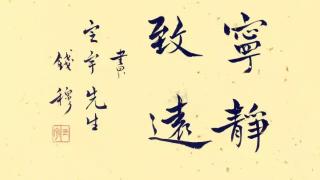 寧靜
致遠
書
空宇先生
錢穆